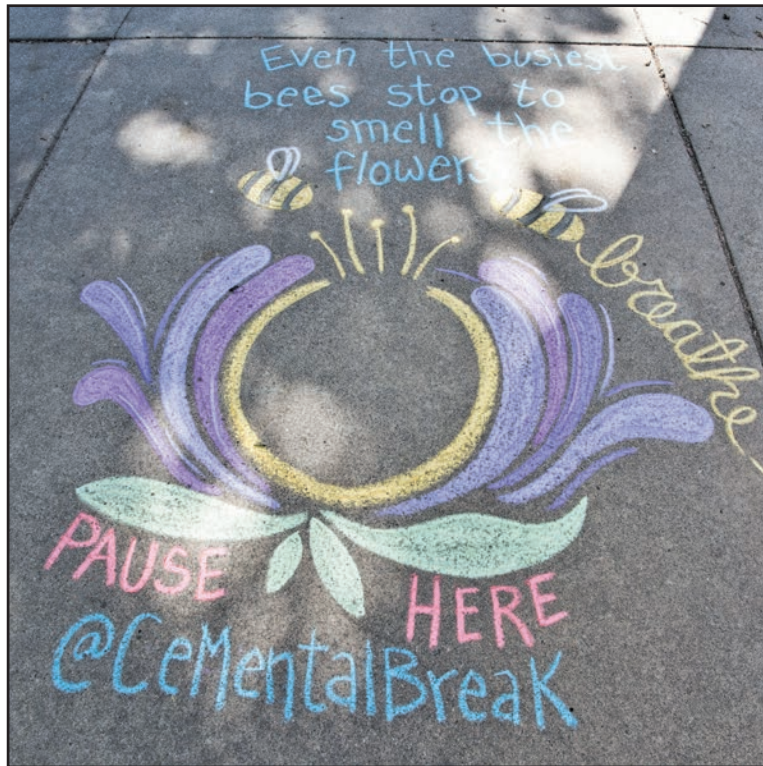 Even the busiest
bees stop to
smell the
flowers
breathe
PAUSE HERE
@CeMentalBreaK